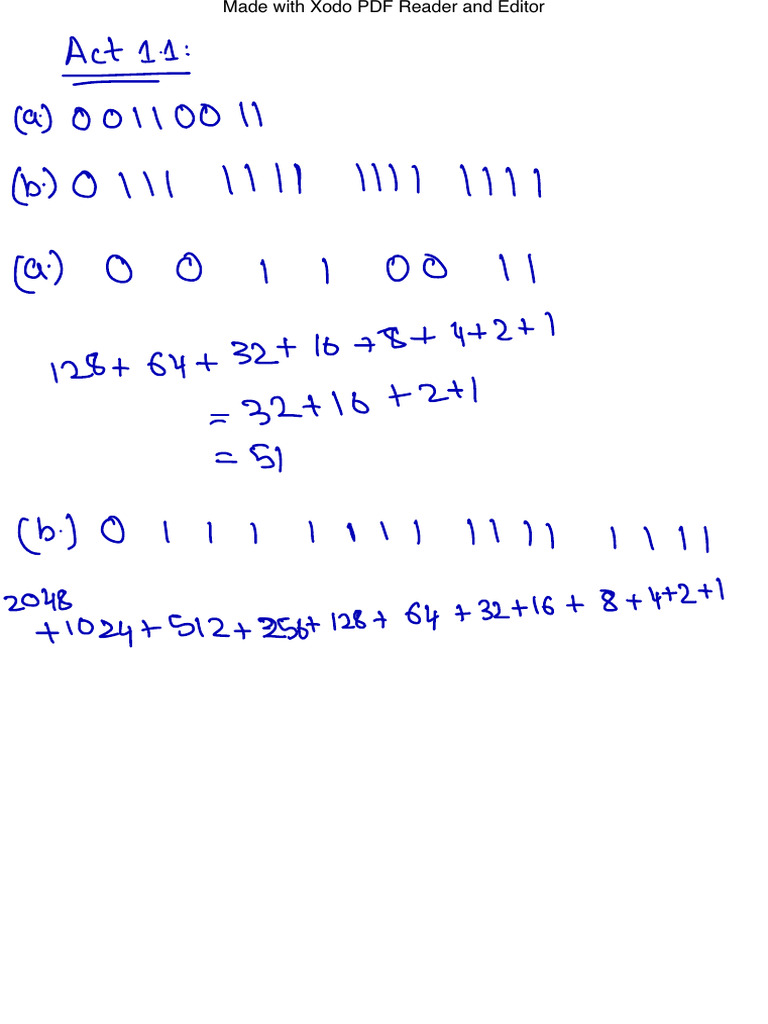 Made with Xodo PDF Reader and Editor
Act 1.1:
(a.) 0 0 1 1 0 0 1 1
(b.) 0 1 1 1 1 1 1 1 1 1 1 1 1 1 1 1
(a.) 0 0 1 1 0 0 1 1
128 + 64 + 32 + 16 + 8 + 4 + 2 + 1
= 32 + 16 + 2 + 1
= 51
(b.) 0 1 1 1 1 1 1 1 1 1 1 1 1 1 1 1
2048
+ 1024 + 512 + 256 + 128 + 64 + 32 + 16 + 8 + 4 + 2 + 1